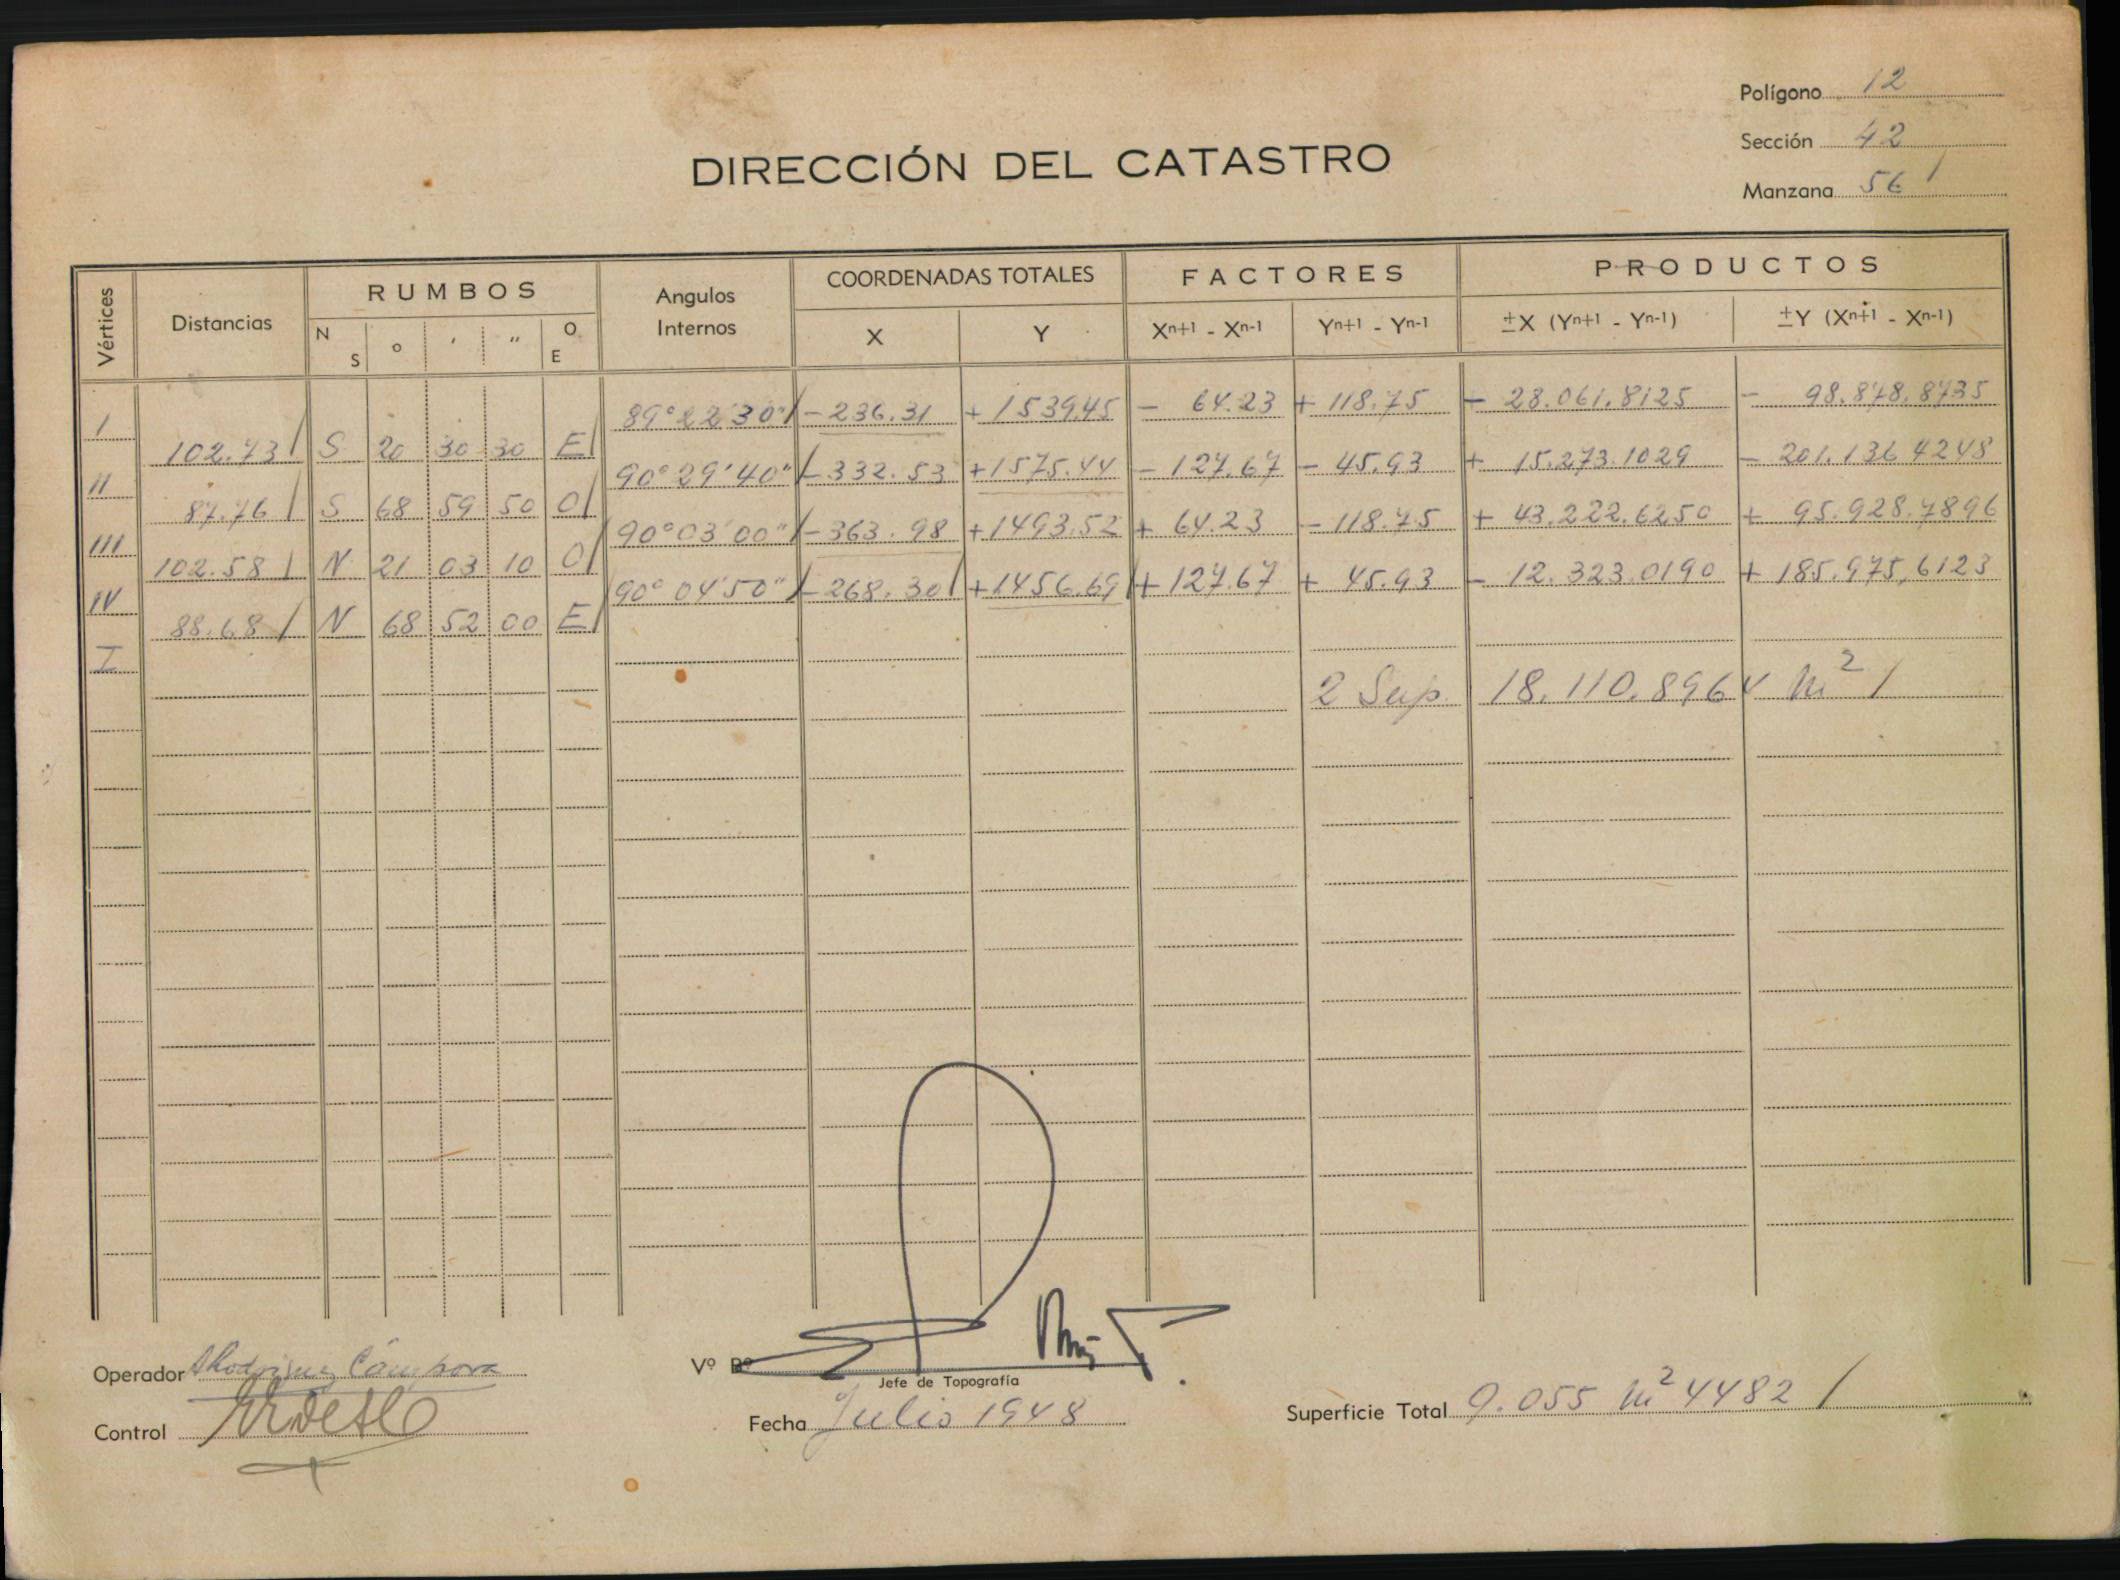 Polígono 12
Sección 42
Manzana 56 /
DIRECCIÓN DEL CATASTRO
Vértices Distancias RUMBOS Angulos Internos COORDENADAS TOTALES FACTORES PRODUCTOS
N S ° ' " O E X Y Xn+1 - Xn-1 Yn+1 - Yn-1 ±X (Yn+1 - Yn-1) ±Y (Xn+1 - Xn-1)
I 89°22'30"/ - 236.31 + 1539.45 - 64.23 + 118.75 - 28.061.8125 - 98.878.8735
102.73/ S 20 30 30 E/
II 90°29'40"/ - 332.53 + 1575.44 - 127.67 - 45.93 + 15.273.1029 - 201.136 4248
87.76/ S 68 59 50 O/
III 90°03'00"/ - 363.98 + 1493.52 + 64.23 - 118.75 + 43.222.6250 + 95.928.7896
102.58/ N 21 03 10 O/
IV 90°04'50"/ - 268.30/ + 1456.69/ + 127.67 + 45.93 - 12.323.0190 + 185.975,6123
88.68/ N 68 52 00 E/
I
2 Sup. 18.110.8964 m2/
Operador ARodriguez Cámpora
Vº Bº
Jefe de Topografía
Control
Fecha Julio 1948
Superficie Total 9.055 m2 4482 /